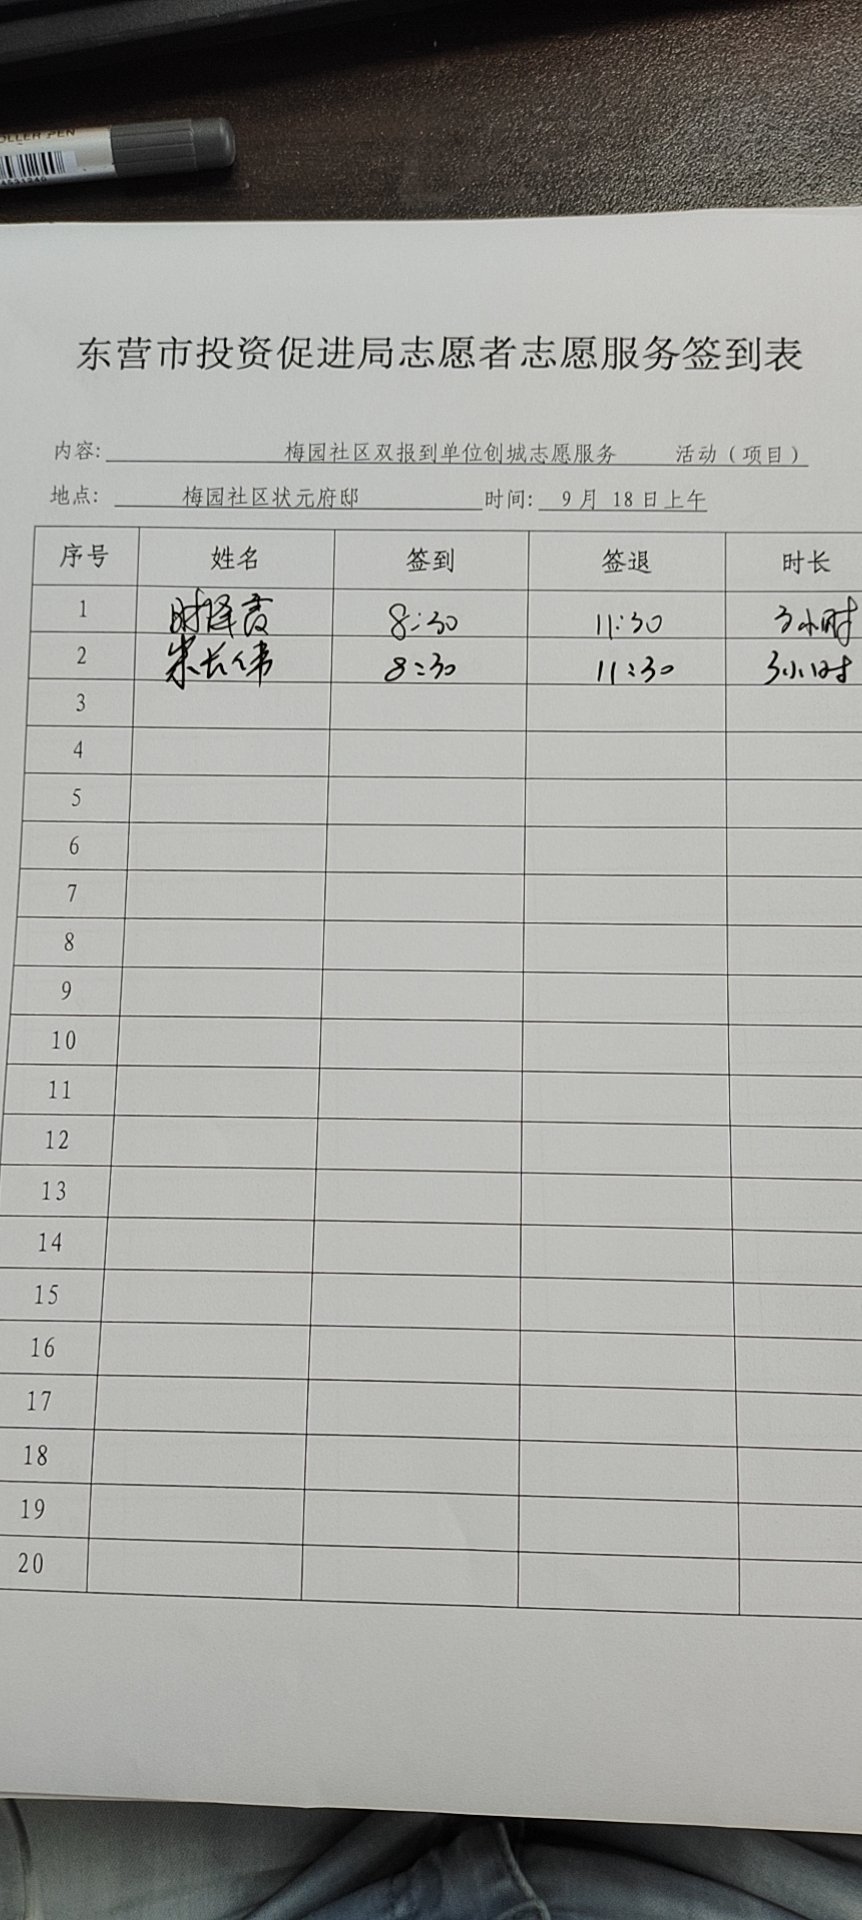 OLLER PEN
东营市投资促进局志愿者志愿服务签到表
内容: 梅园社区双报到单位创城志愿服务 活动（项目）
地点: 梅园社区状元府邸 时间: 9月 18日上午
序号 姓名 签到 签退 时长
1 时泽霞 8:30 11:30 3小时
2 宋长伟 8:30 11:30 3小时
3
4
5
6
7
8
9
10
11
12
13
14
15
16
17
18
19
20